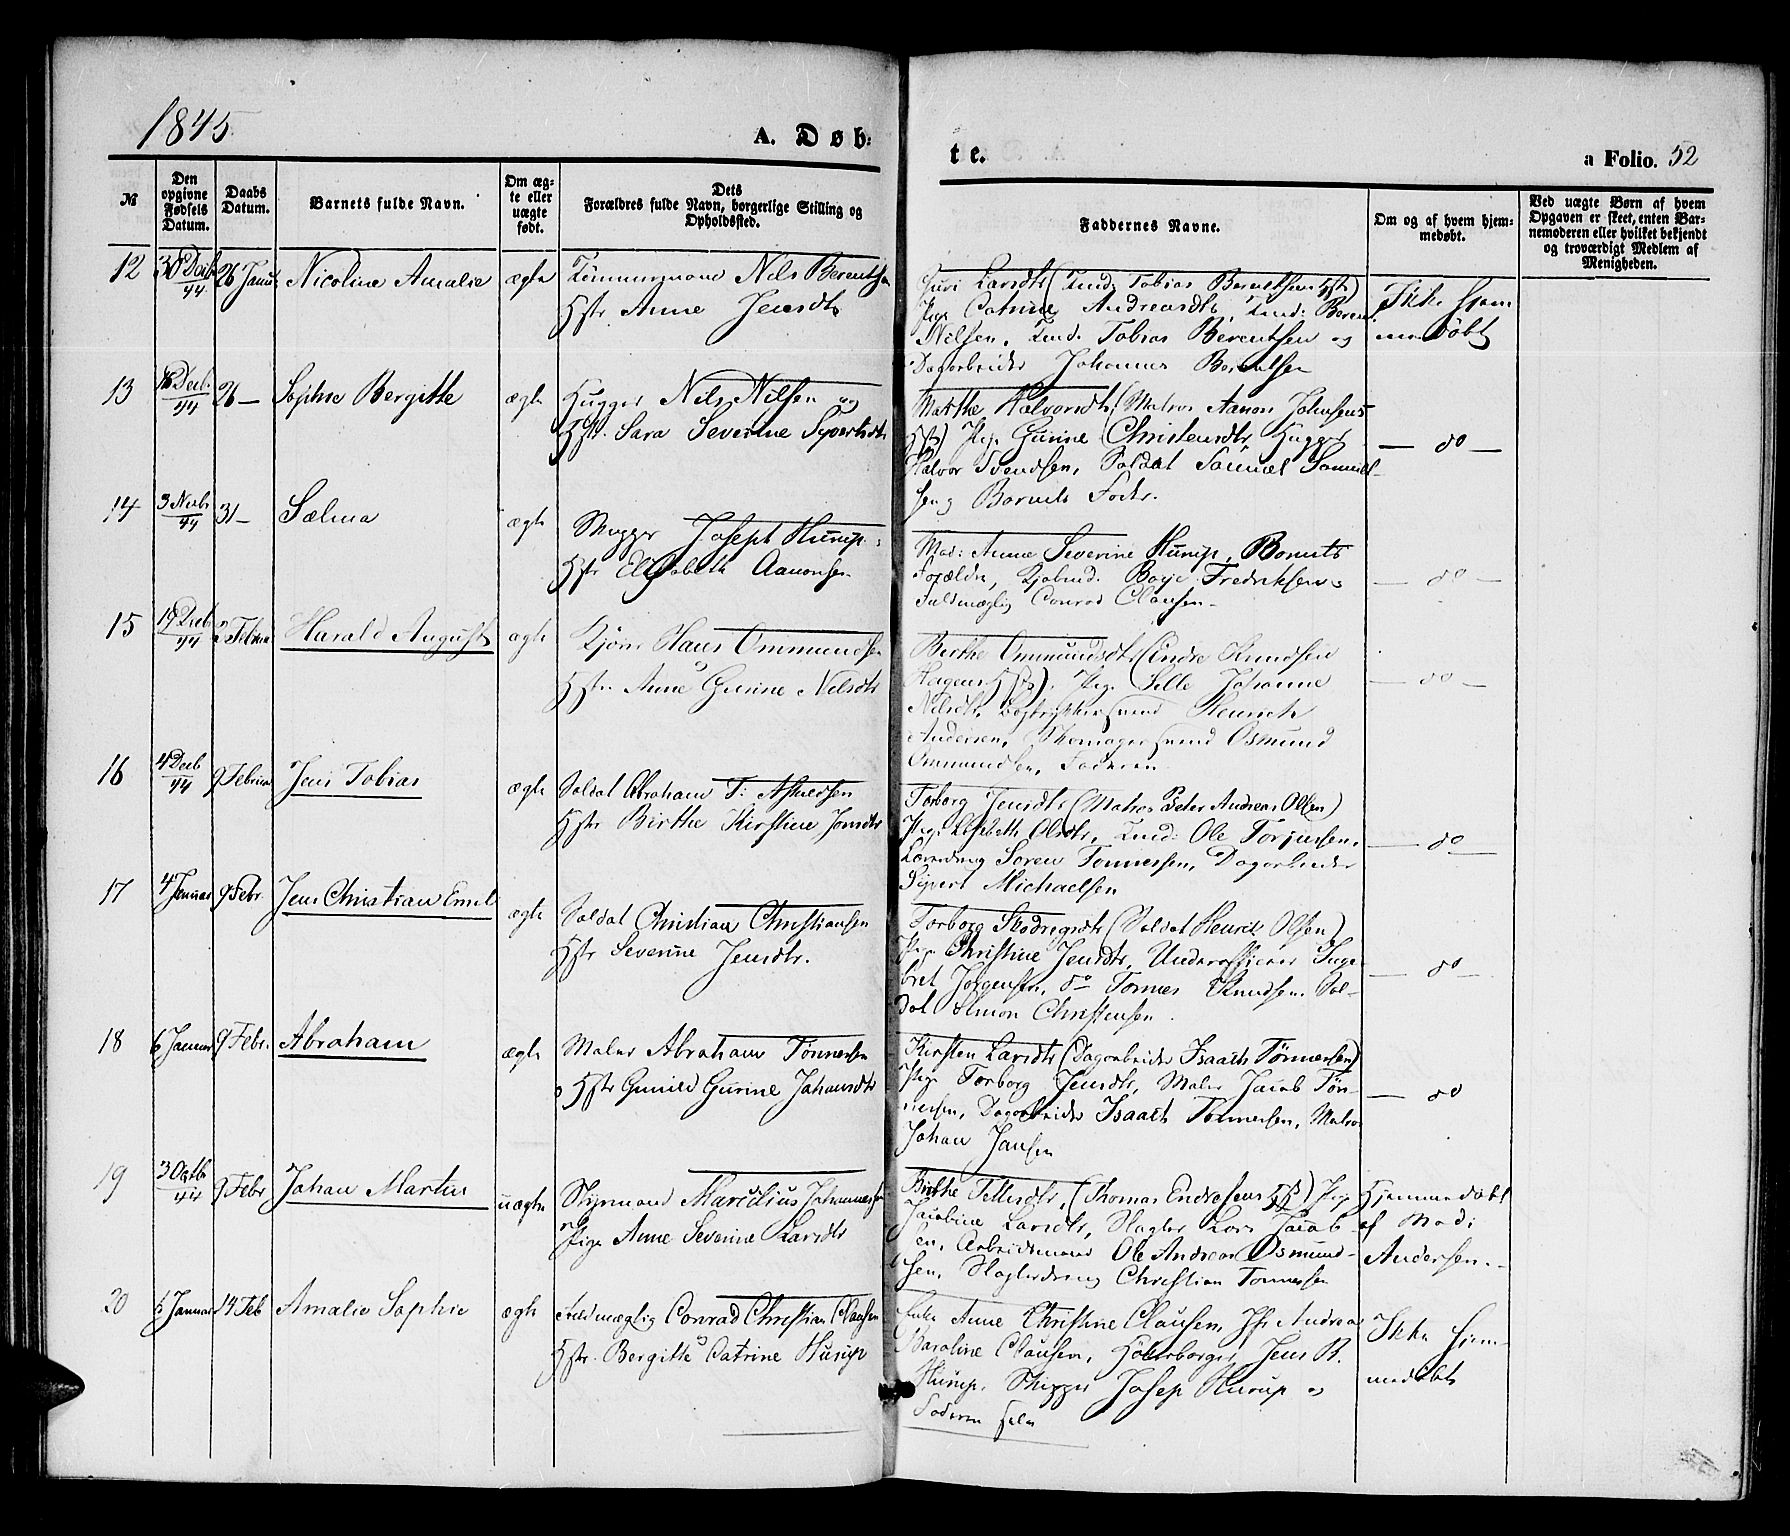 1845
A. Døb:
te.
a Folio. 52
№
Den opgivne Fødsels Datum.
Daabs Datum.
Barnets fulde Navn.
Om ægte eller uægte født.
Dets Forældres fulde Navn, borgerlige Stilling og Opholdssted.
Faddernes Navne.
Om og af hvem hjemmedøbt.
Ved uægte Børn af hvem Opgaven er skeet, enten Barnemoderen eller hvilket bekjendt og troværdigt Medlem af Menigheden.
12
26 Janu
Nicoline Amalie
ægte
Tømmermand Nils Berentsen
Hstr Anne Jensdtr
Guri Larsdtr (Tmd: Tobias Berentsens Hstr)
Pige Catrine Andreasdtr, Tmd: Berent
Nilsen, Tmd. Tobias Berentsen og
Dagarbeider Johannes Berentsen
Ikke hjem
medøbt
13
18 Decb. 44
26 —
Sophie Bergitte
ægte
Hugger Nels Nilsen og
Hstr. Sara Severine Syvertsdtr
Marthe Halvorsdtr (Matros Aanon Johnsens
Hstr) Pige Gurine Christensdtr, Hugger
Halvor Svendsen, Soldat Samuel Samuel
sen og Barnets Fader.
— do —
14
3 Novbr 44
31 —
Salma
ægte
Skipper Joseph Hurup
Hstr Elisabeth Aanonsen
Mad: Anne Severine Hurup, Barnets
Forældre, Kjøbmd. Boye Fredriksen
Fuldmægtig Conrad Clausen
— do —
15
19 Decb 44
2 Februar
Harald August
ægte
Hans Ommundsen
Hstr. Anne Gurine Nilsdtr
Berthe Ommundsdtr (Endre Knudsen
Hagens Hstr), Pige Sille Johanne
Nilsdtr, Bogtrykkersvend Henrich
Andersen, Skomagersvend Osmund
Ommundsen, Faderen
— do —
16
4 Decb 44
9 Februar
Jens Tobias
ægte
Soldat Abraham T. Aslaksen
Hstr Birthe Kirstine Jensdtr
Torborg Jensdtr (Matros Peter Andreas Olsen)
Pige Lisbeth Olsdtr, Tmd: Ole Torjussen,
Søren Tønnessen, Dagarbeider
Sivert Michaelsen
— do —
17
4 Januar
9 Febr
Jens Christian Emil
ægte
Soldat Christian Christiansen
Hstr Severine Jensdtr.
Torborg (Soldat Henrik Olsen)
Pige Christine Jensdtr, Underofficier Inge
bret Jørgensen, do Tønnes Knudsen, Sol-
dat Simon Christensen.
— do —
18
6 Januar
9 Febr.
Abraham
ægte
Maler Abraham Tønnesen
Hstr Gunild Gurine Johansdtr
Kirsten Larsdtr (Dagarbeider Isaach Tønnesen)
Pige Torborg Jensdtr, Maler Jacob Tøn-
nesen, Dagarbeider Isaach Tønnesen, Matros
Johan Jansen
— do
19
3 Octb 44
9 Febr
Johan Martin
uægte
Styrmand Marcelius Johannesen
Pige Anne Severine Larsdtr
Birthe Tellefsdtr, (Thomas Endresens Hstr) Pige
Jacobine Larsdtr, Slagter Lars Jacob-
sen, Arbeidsmand Ole Andreas Osmund-
sen, Slagterdreng Christian Tønnesen
Hjemmedøbt
af Mad:
Andersen.
20
6 Januar
14 Feb
Amalie Sophie
ægte
Fuldmægtig Conrad Christian Clausen
Hstr. Bergitte Catrine Hurup
Enke Anne Christine Clausen, Jfr. Andrea
Caroline Clausen, Jens B.
Hurup, Skipper Josep Hurup og
Faderen selv
Ikke hjem-
medøbt